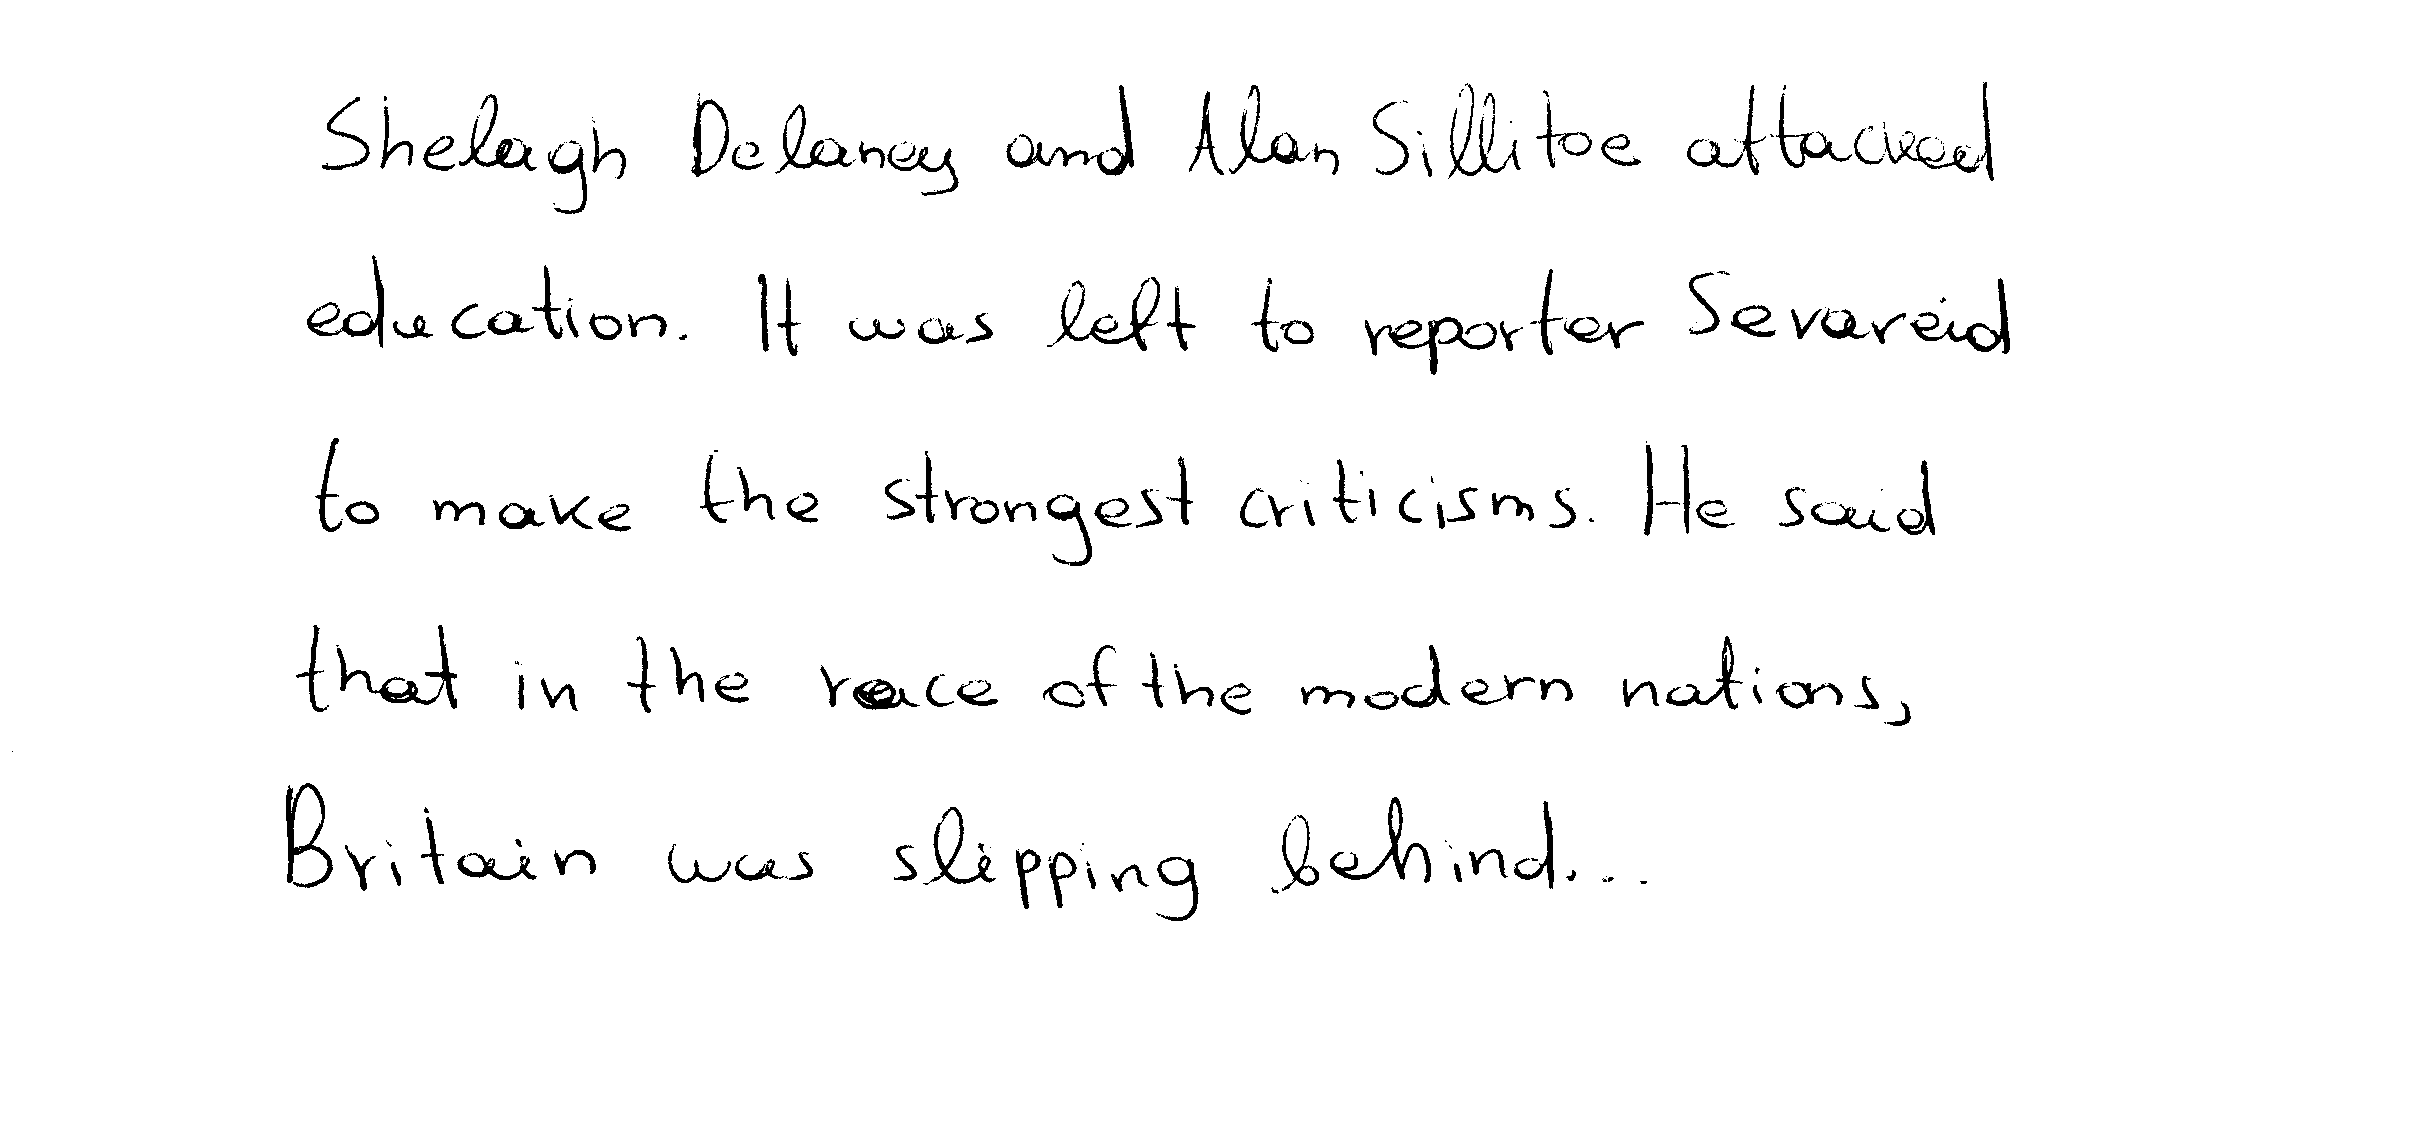 Shelagh Delaney and Alan Sillitoe attacked
education. It was left to reporter Sevareid
to make the strongest criticisms. He said
that in the race of the modern nations,
Britain was slipping behind...